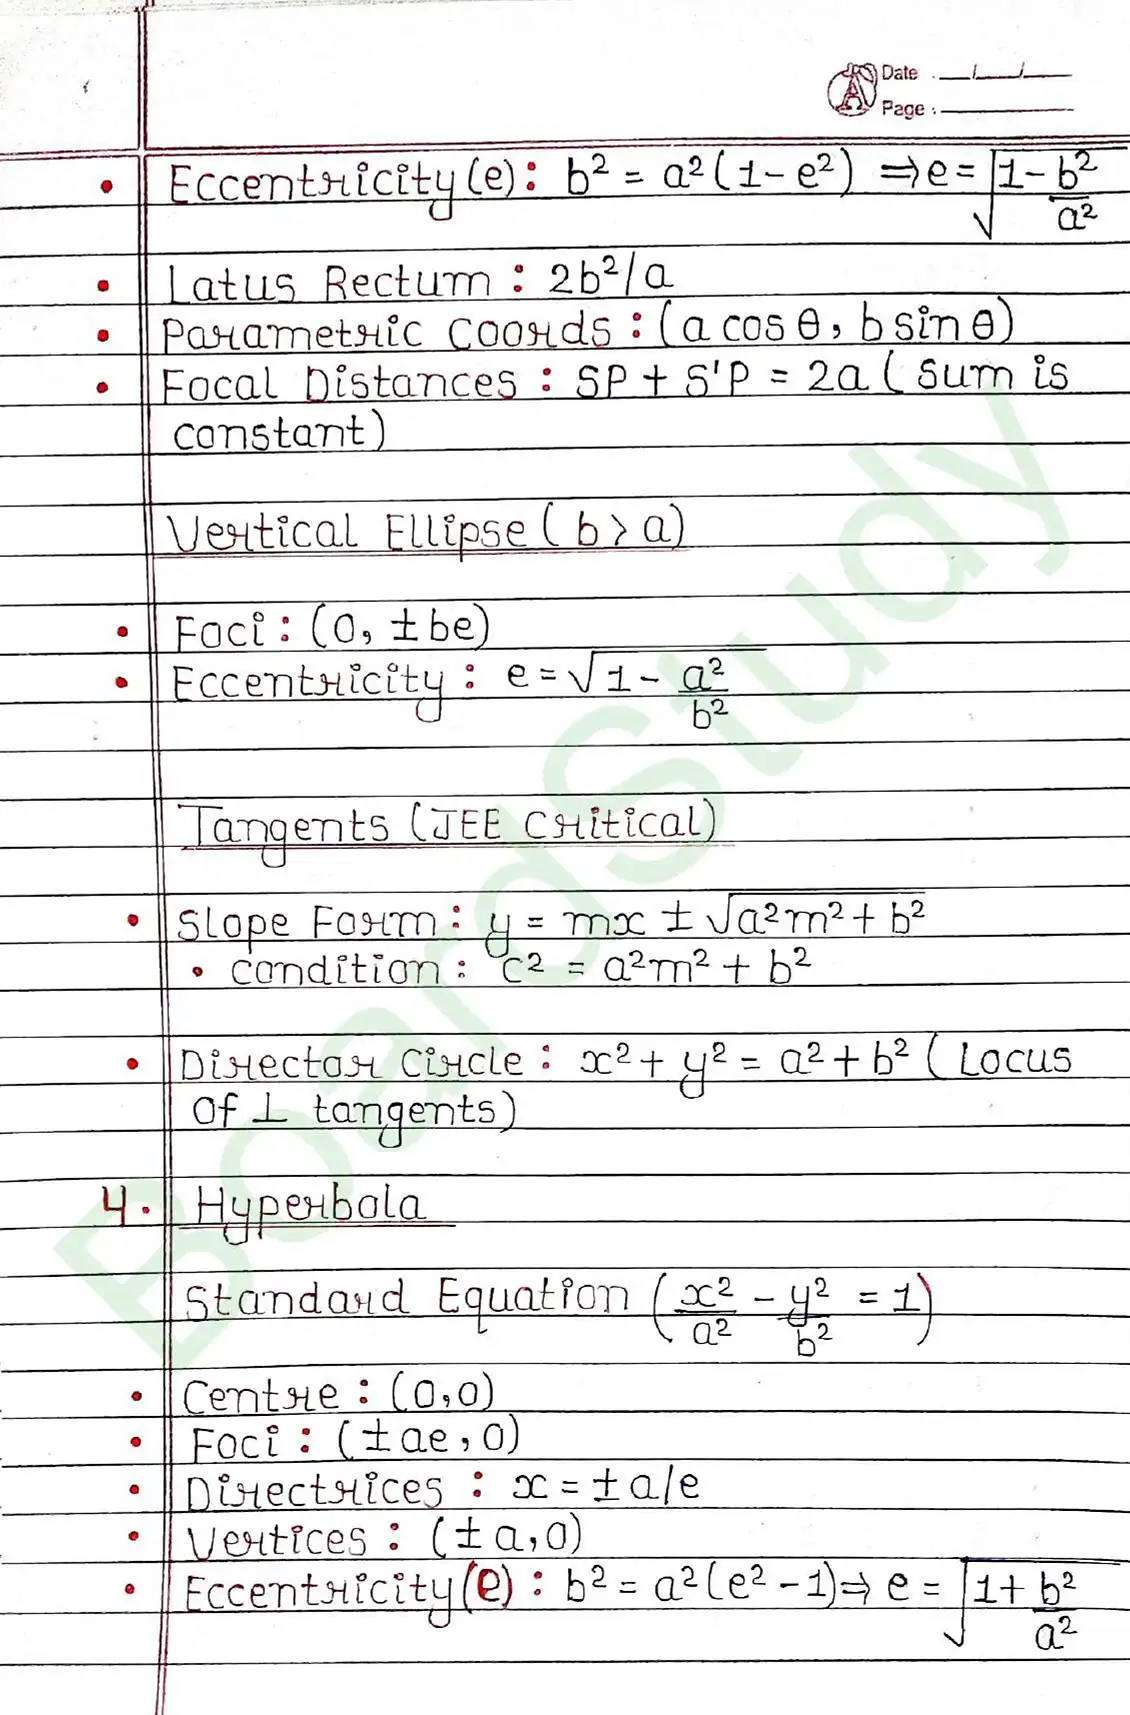 Date . __/__/__
Page : ______
• Eccentricity (e) : b² = a² (1 - e²) ⇒ e = √(1 - b²/a²)
• Latus Rectum : 2b²/a
• Parametric Coords : (a cos θ, b sin θ)
• Focal Distances : SP + S'P = 2a ( Sum is
constant)
Vertical Ellipse ( b > a)
• Foci : (0, ± be)
• Eccentricity : e = √(1 - a²/b²)
Tangents (JEE Critical)
• Slope Form : y = mx ± √(a²m² + b²)
• condition : c² = a²m² + b²
• Director Circle : x² + y² = a² + b² ( Locus
Of ⊥ tangents)
4. Hyperbola
Standard Equation (x²/a² - y²/b² = 1)
• Centre : (0,0)
• Foci : (± ae, 0)
• Directrices : x = ± a/e
• Vertices : (± a, 0)
• Eccentricity (e) : b² = a² (e² - 1) ⇒ e = √(1 + b²/a²)
BoardStudy